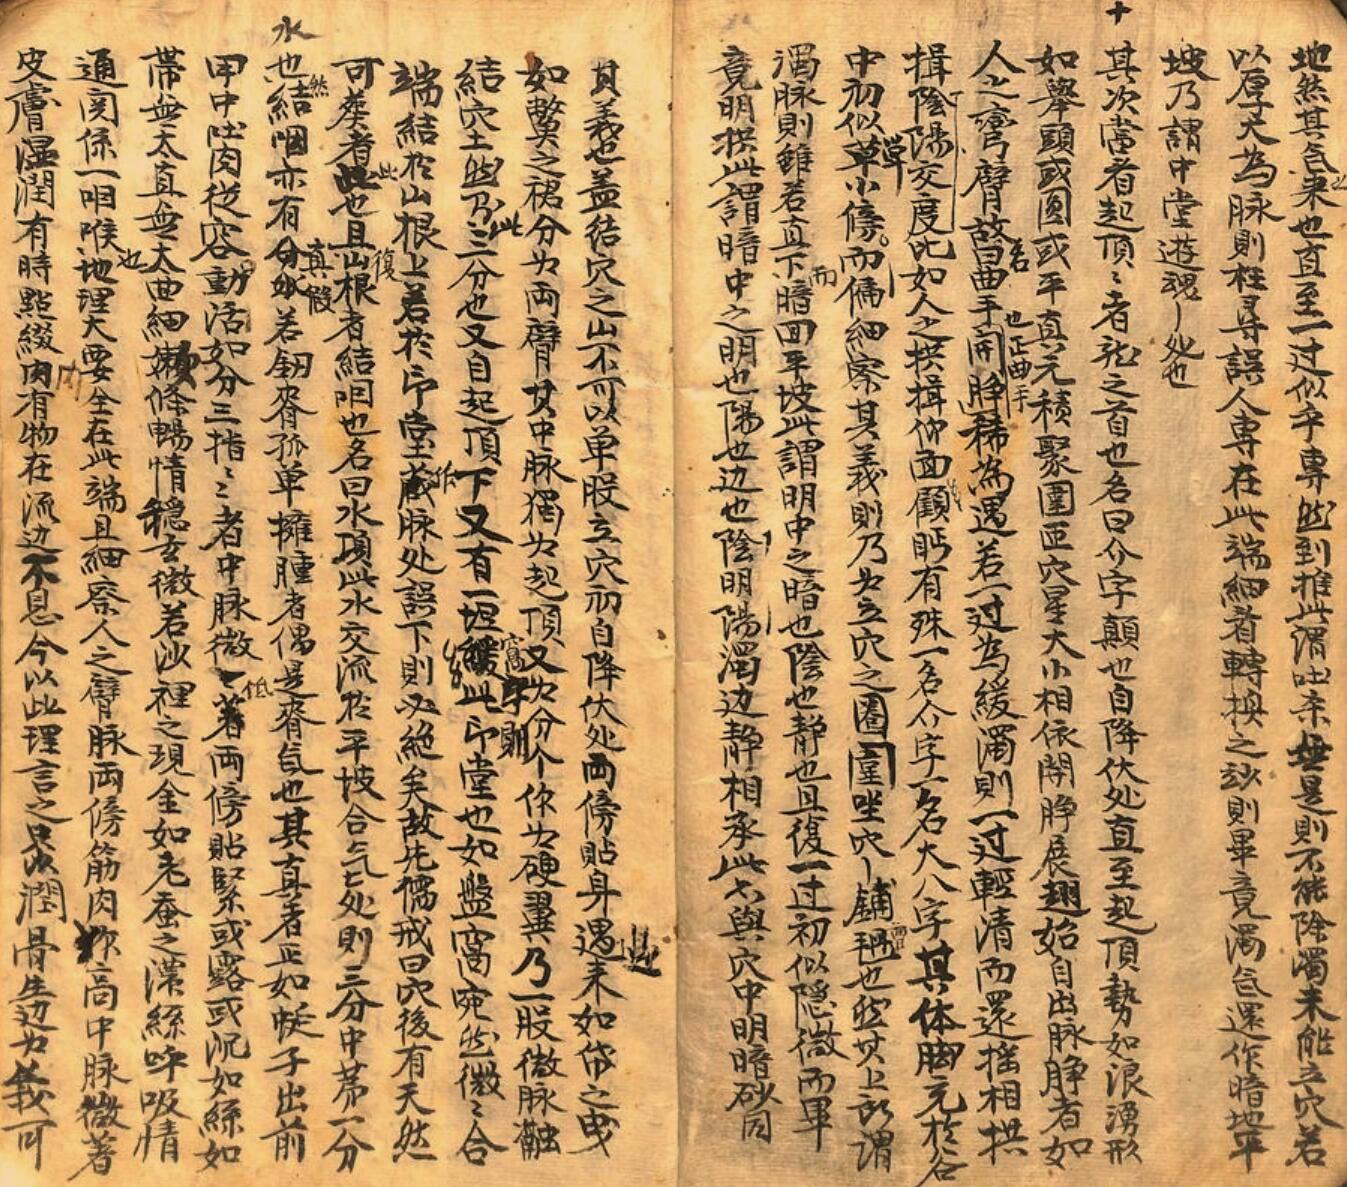 地然其气来也直至一过似乎專然到推此谓吐是則不能除濁未能立穴若
以厚大為脉則枉尋誤人専在此端細者轉换之訟則畢竟濁氣還作暗地平
坡乃謂中堂遊魂处也
十
其次當者起頂〻者之首也名曰介字顛也自降伏处直至起頂勢如浪湧形
如舉頭或圓或平真元積聚圍匝穴星大小相依開睁展翅始自出脉睁者如
人之弯臂故曰曲手開睁稀為遇若一过為緩濁則一过輕清而還揺相拱
揖陰陽交度比如人之拱揖仰面顧眄有殊一名介字一名大八字其体脚元於
中初似草小條而偏細察其義則乃为立穴之圈圍坐穴也然其上謂
濁脉則雖若直下暗回平坡此謂明中之暗也陰也静也且復一过初似隐微而畢
竟明拱此謂暗中之明也陽也边也陰明陽濁边静相承此與穴中明暗砂同
其義也盖结穴之山不可以单股立穴初自降伏处両傍貼身遇来如帒之曳
如鱉之裙分为両臂其中脉獨为起頂又为分个作为硬翼乃一股微脉融
結穴土此三分也又自起頂下又有一堆此印堂也如盤窩宛然微〻合
端結於山根上若於印堂藏脉处誤下則必絶矣故先儒戒曰穴後有天然
可塟者此也且山根者結咽也名曰水項此水交流於平坡合气处則三分中第一分
水
也結咽亦有分水若釰脊孤单擁腫者偶是脊气也其真者正如蜈子出前
甲中吐肉従容動活如分三指〻者中脉微〻著両傍貼緊或露或沉如絲如
帶無太直無大曲細嫩條暢情穏玄微若沙裡之現金如老蚕之濃絲呼吸情
通関係一咽喉地理大要全在此端且細察人之臂脉両傍筋肉高中脉微著
皮膚湿潤有時點綴肉有物在流边不息今以此理言之潤骨生边为義可